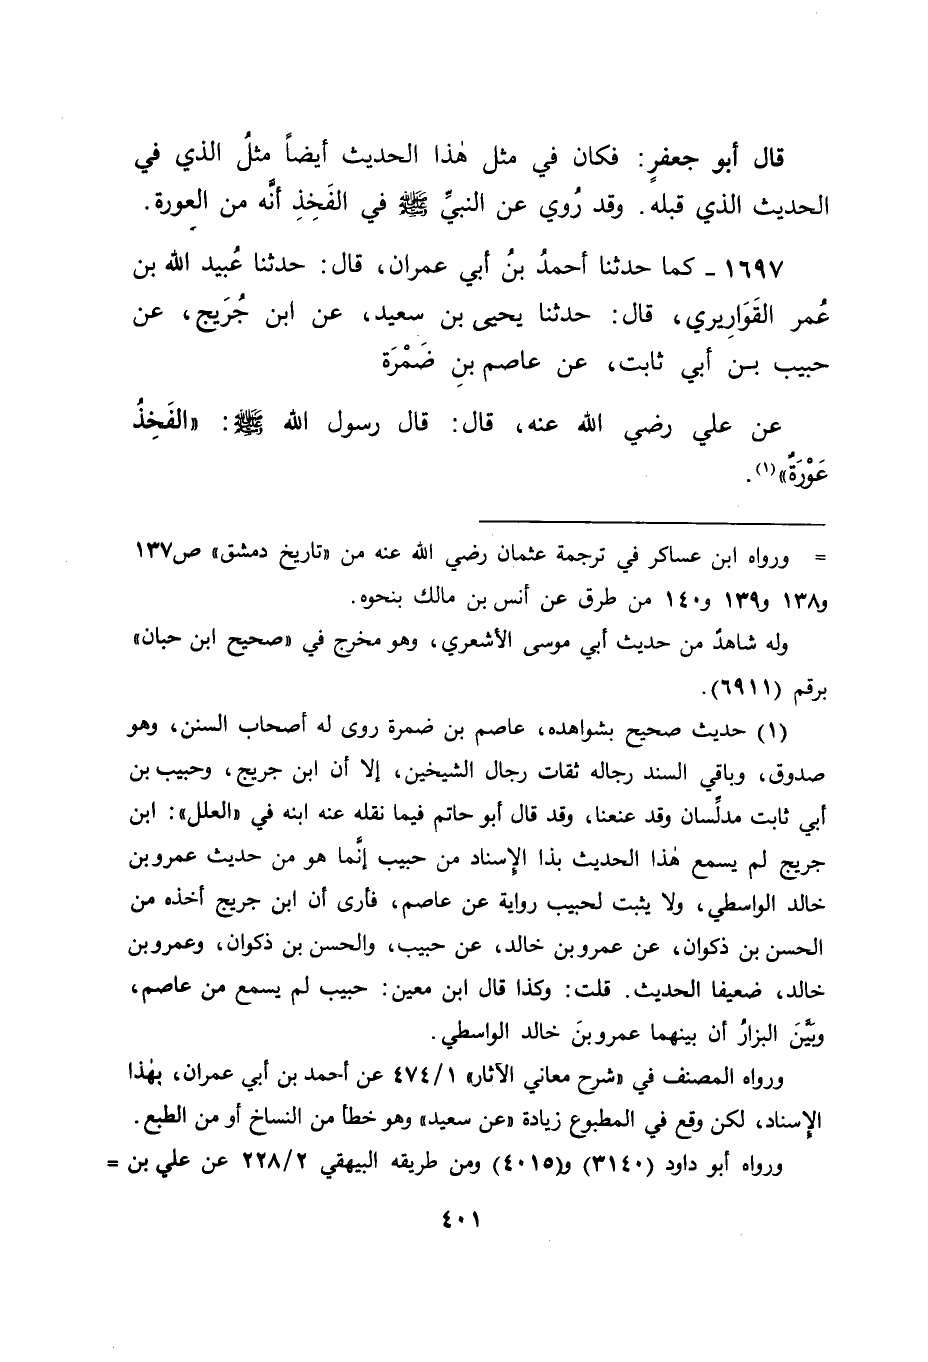 قال أبو جعفرٍ: فكان في مثل هٰذا الحديث أيضاً مثلُ الذي في
الحديث الذي قبله. وقد رُوي عن النبيِّ ﷺ في الفَخِذِ أنَّه من العورة.
١٦٩٧ ـ كما حدثنا أحمدُ بنُ أبي عمران، قال: حدثنا عُبيد الله بن
عُمر القَوَاريري، قال: حدثنا يحيى بن سعيد، عن ابن جُرَيج، عن
حبيب بن أبي ثابت، عن عاصم بنِ ضَمْرَة
عن علي رضي الله عنه، قال: قال رسول الله ﷺ: «الفَخِذُ
عَوْرَةٌ»(١).
= ورواه ابن عساكر في ترجمة عثمان رضي الله عنه من «تاريخ دمشق» ص١٣٧
و١٣٨ و١٣٩ و١٤٠ من طرق عن أنس بن مالك بنحوه.
وله شاهدٌ من حديث أبي موسى الأشعري، وهو مخرج في «صحيح ابن حبان»
برقم (٦٩١١).
(١) حديث صحيح بشواهده، عاصم بن ضمرة روى له أصحاب السنن، وهو
صدوق، وباقي السند رجاله ثقات رجال الشيخين، إلا أن ابن جريج، وحبيب بن
أبي ثابت مدلِّسان وقد عنعنا، وقد قال أبو حاتم فيما نقله عنه ابنه في «العلل»: ابن
جريج لم يسمع هٰذا الحديث بذا الإسناد من حبيب إنَّما هو من حديث عمرو بن
خالد الواسطي، ولا يثبت لحبيب رواية عن عاصم، فأرى أن ابن جريج أخذه من
الحسن بن ذكوان، عن عمرو بن خالد، عن حبيب، والحسن بن ذكوان، وعمرو بن
خالد، ضعيفا الحديث. قلت: وكذا قال ابن معين: حبيب لم يسمع من عاصم،
وبَيَّنَ البزارُ أن بينهما عمرو بنَ خالد الواسطي.
ورواه المصنف في «شرح معاني الآثار» ٤٧٤/١ عن أحمد بن أبي عمران، بهٰذا
الإسناد، لكن وقع في المطبوع زيادة «عن سعيد» وهو خطأ من النساخ أو من الطبع.
ورواه أبو داود (٣١٤٠) و(٤٠١٥) ومن طريقه البيهقي ٢٢٨/٢ عن علي بن =
٤٠١